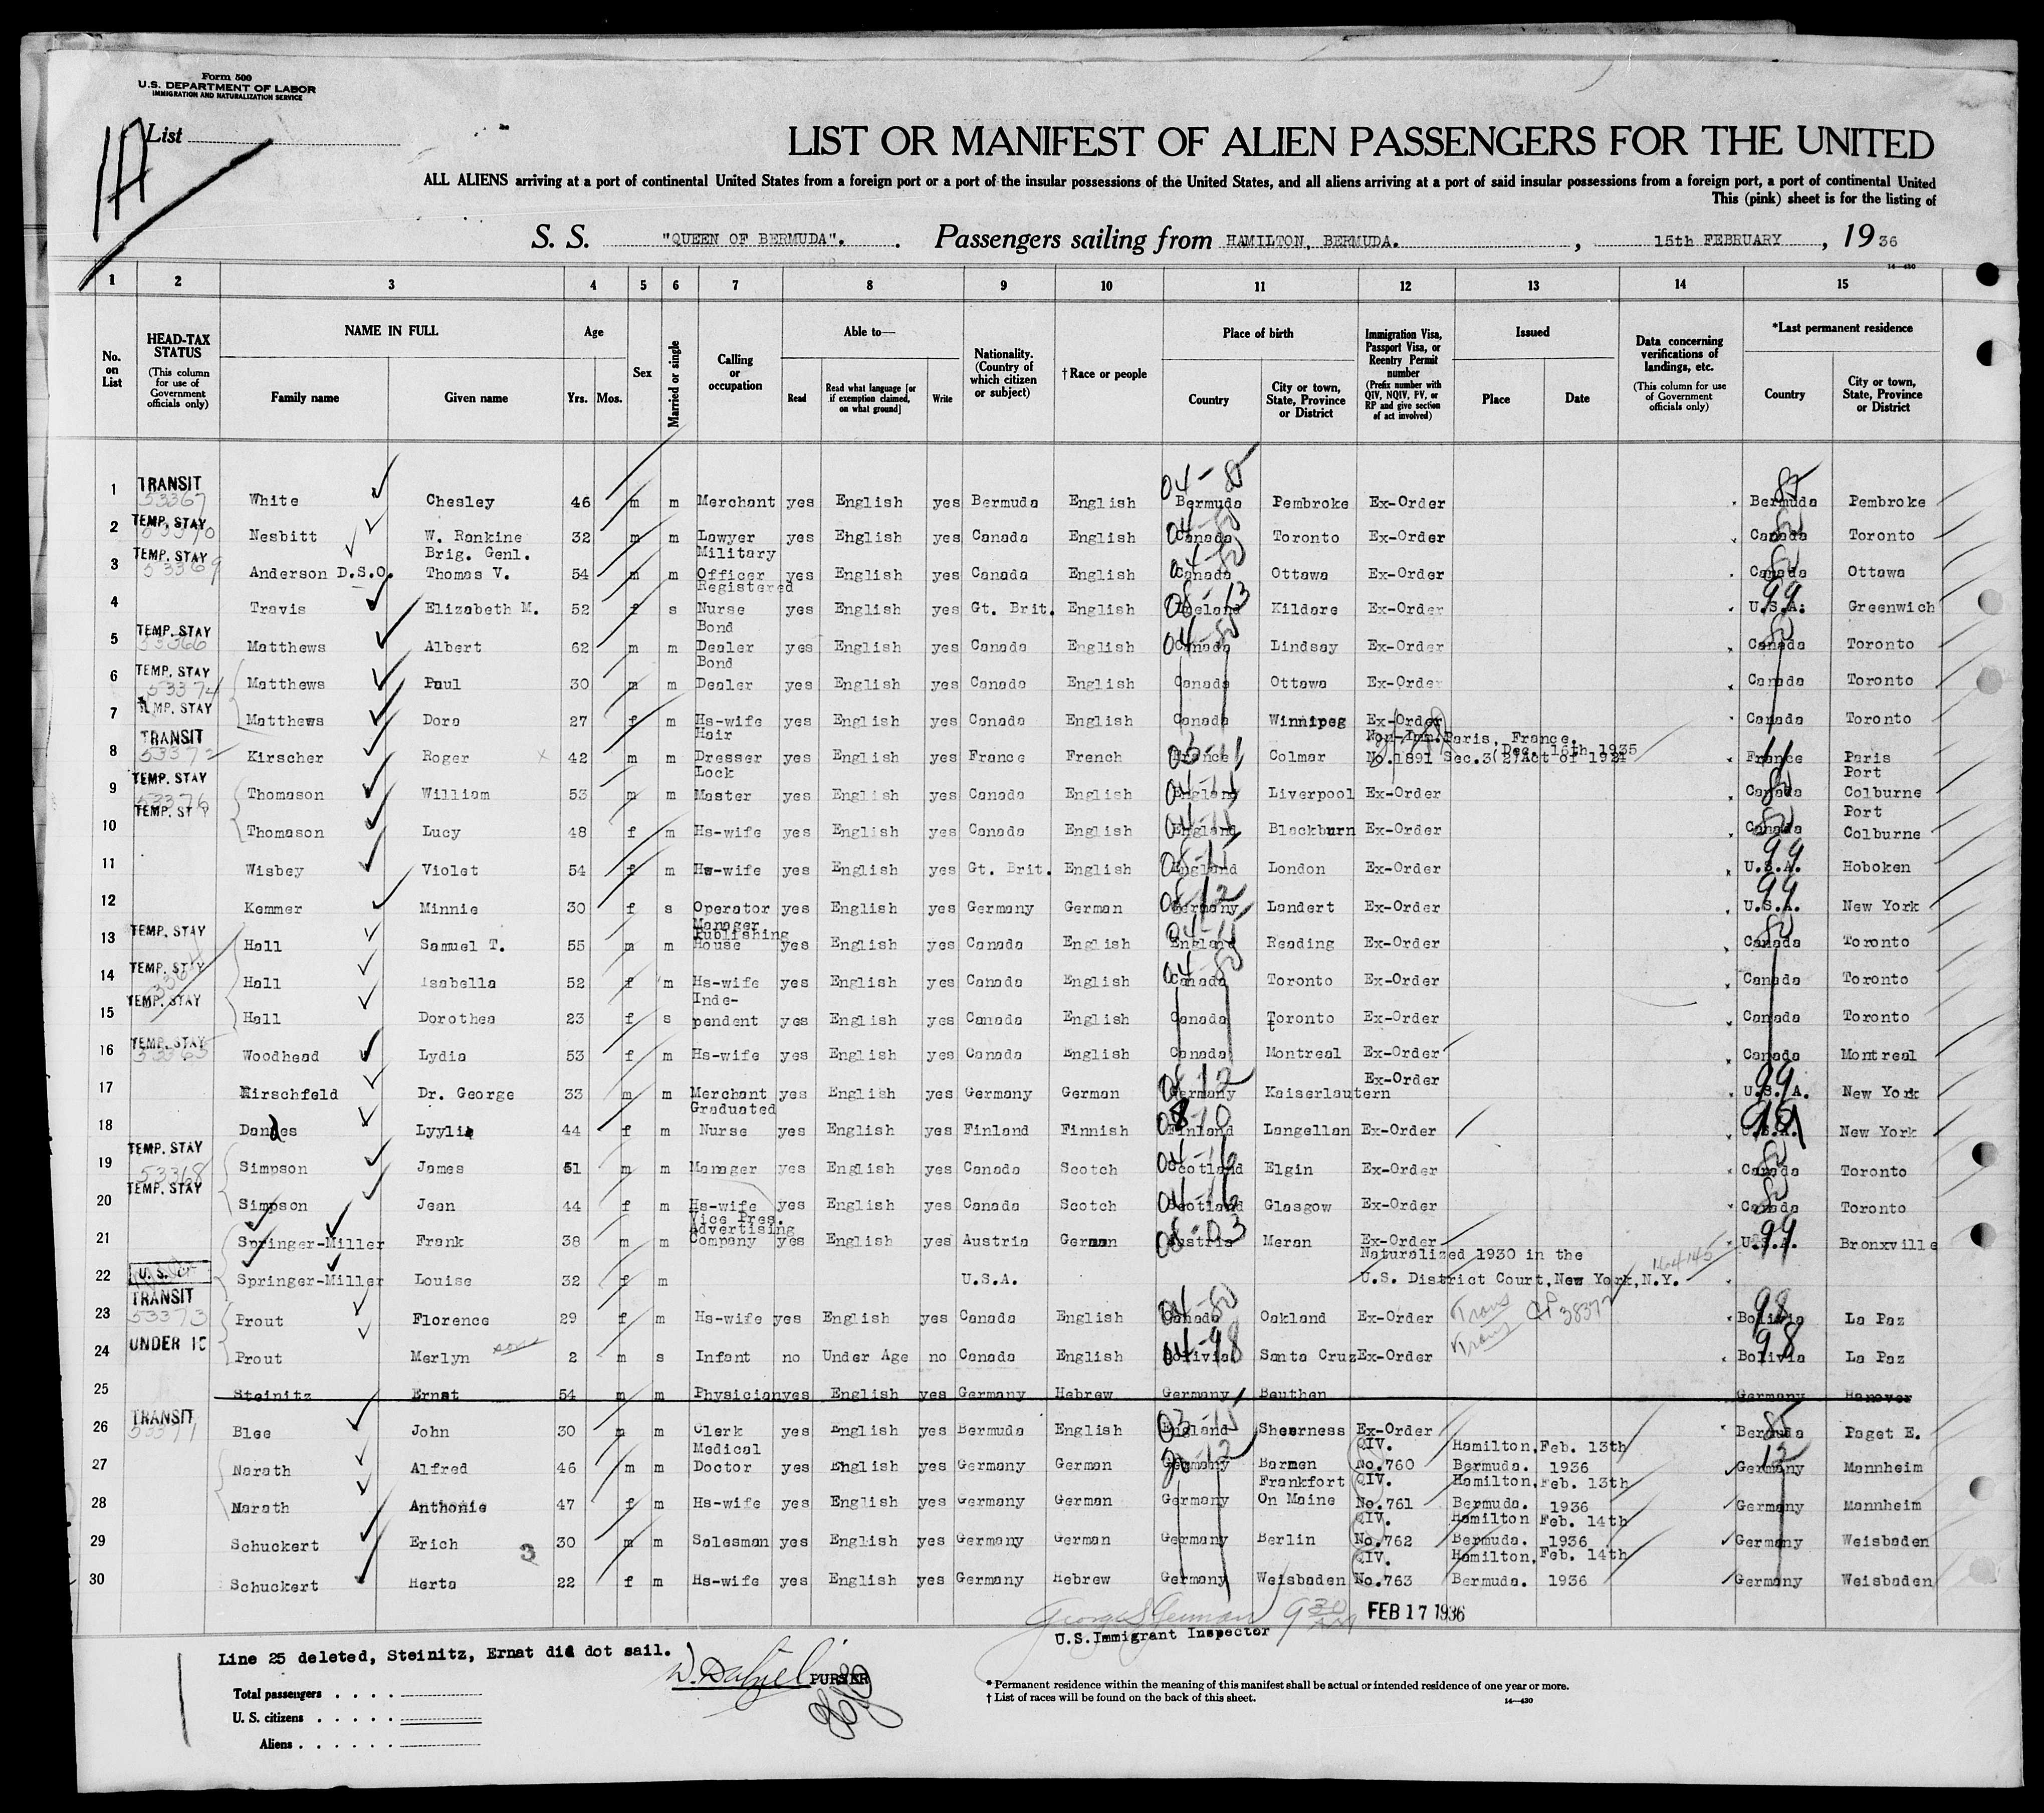 Form 500
U.S. DEPARTMENT OF LABOR
IMMIGRATION AND NATURALIZATION SERVICE
List
LIST OR MANIFEST OF ALIEN PASSENGERS FOR THE UNITED
ALL ALIENS arriving at a port of continental United States from a foreign port or a port of the insular possessions of the United States, and all aliens arriving at a port of said insular possessions from a foreign port, a port of continental United
This (pink) sheet is for the listing of
S. S. "QUEEN OF BERMUDA". Passengers sailing from HAMILTON, BERMUDA. , 15th FEBRUARY , 19 36
14—430
1 2 3 4 5 6 7 8 9 10 11 12 13 14 15
No. on List
HEAD-TAX STATUS (This column for use of Government officials only)
NAME IN FULL Family name Given name
Age Yrs. Mos.
Sex
Married or single
Calling or occupation
Able to— Read Read what language [or if exemption claimed, on what ground] Write
Nationality. (Country of which citizen or subject)
†Race or people
Place of birth Country City or town, State, Province or District
Immigration Visa, Passport Visa, or Reentry Permit number (Prefix number with QIV, NQIV, PV, or RP and give section of act involved)
Issued Place Date
Data concerning verifications of landings, etc. (This column for use of Government officials only)
*Last permanent residence Country City or town, State, Province or District
1 TRANSIT 53367 White Chesley 46 m m Merchant yes English yes Bermuda English 04-85 Bermuda Pembroke Ex-Order 85 Bermuda Pembroke
2 TEMP. STAY 53370 Nesbitt W. Rankine 32 m m Lawyer yes Ehglish yes Canada English 04-80 Canada Toronto Ex-Order 80 Canada Toronto
3 TEMP. STAY 53369 Anderson D.S.O. Brig. Genl. Thomas V. 54 m m Military Officer yes English yes Canada English 04-80 Canada Ottawa Ex-Order 80 Canada Ottawa
4 Travis Elizabeth M. 52 f s Registered Nurse yes English yes Gt. Brit. English 08-13 Ireland Kildare Ex-Order 99 U.S.A. Greenwich
5 TEMP. STAY 53366 Matthews Albert 62 m m Bond Dealer yes English yes Canada English 04-80 Canada Lindsay Ex-Order 80 Canada Toronto
6 TEMP. STAY 53374 Matthews Paul 30 m m Bond Dealer yes English yes Canada English Canada Ottawa Ex-Order Canada Toronto
7 TEMP. STAY Matthews Dora 27 f m Hs-wife yes English yes Canada English Canada Winnipeg Ex-Order Canada Toronto
8 TRANSIT 53372 Kirscher Roger x 42 m m Hair Dresser yes English yes France French 03-11 France Colmar Non-Imm. No.1891 Paris, France, Dec. 16th 1935 Sec.3(2)Act of 1924 11 France Paris
9 TEMP. STAY 53376 Thomason William 53 m m Lock Master yes English yes Canada English England Liverpool Ex-Order 80 Canada Port Colburne
10 TEMP. STAY Thomason Lucy 48 f m Hs-wife yes English yes Canada English England Blackburn Ex-Order 80 Canada Port Colburne
11 Wisbey Violet 54 f m Hs-wife yes English yes Gt. Brit. English England London Ex-Order 99 U.S.A. Hoboken
12 Kemmer Minnie 30 f s Operator yes English yes Germany German 08-12 Germany Landert Ex-Order 99 U.S.A. New York
13 TEMP. STAY Hall Samuel T. 55 m m Manager Publishing House yes English yes Canada English England Reading Ex-Order 80 Canada Toronto
14 TEMP. STAY Hall Isabella 52 f m Hs-wife yes English yes Canada English 04-80 Canada Toronto Ex-Order Canada Toronto
15 TEMP. STAY Hall Dorothea 23 f s Inde-pendent yes English yes Canada English Canada Toronto Ex-Order Canada Toronto
16 TEMP. STAY 53365 Woodhead Lydia 53 f m Hs-wife yes English yes Canada English Canada Montreal Ex-Order Canada Montreal
17 Hirschfeld Dr. George 33 m m Merchant yes English yes Germany German 08-12 Germany Kaiserlautern Ex-Order 99 U.S.A. New York
18 Dandes Lyylia 44 f m Graduated Nurse yes English yes Finland Finnish Finland Langellan Ex-Order U.S.A. New York
19 TEMP. STAY 53368 Simpson James 51 m m Manager yes English yes Canada Scotch 04-16 Scotland Elgin Ex-Order 80 Canada Toronto
20 TEMP. STAY Simpson Jean 44 f m Hs-wife yes English yes Canada Scotch 04-16 Scotland Glasgow Ex-Order 80 Canada Toronto
21 Springer-Miller Frank 38 m m Vice Pres. Advertising Company yes English yes Austria German 08-03 Austria Meran Ex-Order 99 U.S.A. Bronxville
22 U.S. Springer-Miller Louise 32 f m U.S.A. Naturalized 1930 in the U.S. District Court, New York, N.Y. 164145
23 TRANSIT 53373 Prout Florence 29 f m Hs-wife yes English yes Canada English 04-80 Canada Oakland Ex-Order Trans 98 Bolivia La Paz
24 UNDER 16 Prout Merlyn 2 m s Infant no Under Age no Canada English 04-98 Bolivia Santa Cruz Ex-Order Trans 98 Bolivia La Paz
25 Steinitz Ernat 54 m m Physician yes English yes Germany Hebrew Germany Beuthen Germany Hanover
26 TRANSIT 53371 Blee John 30 m m Clerk yes English yes Bermuda English 03-15 England Sheerness Ex-Order 85 Bermuda Paget E.
27 Narath Alfred 46 m m Medical Doctor yes English yes Germany German Germany Barmen QIV. No.760 Hamilton, Bermuda. Feb. 13th 1936 12 Germany Mannheim
28 Narath Anthonie 47 f m Hs-wife yes English yes Germany German Germany Frankfort On Maine QIV. No.761 Hamilton, Bermuda. Feb. 13th 1936 Germany Mannheim
29 Schuckert Erich 3 30 m m Salesman yes English yes Germany German Germany Berlin QIV. No.762 Hamilton Bermuda. Feb. 14th 1936 Germany Weisbaden
30 Schuckert Herta 22 f m Hs-wife yes English yes Germany Hebrew Germany Weisbaden QIV. No.763 Hamilton, Bermuda. Feb. 14th 1936 Germany Weisbaden
George S German 9 30 AM FEB 17 1936
U.S.Immigrant Inspector
Line 25 deleted, Steinitz, Ernat did dot sail.
PURSER
Total passengers
U. S. citizens
Aliens
* Permanent residence within the meaning of this manifest shall be actual or intended residence of one year or more.
† List of races will be found on the back of this sheet.
14—430